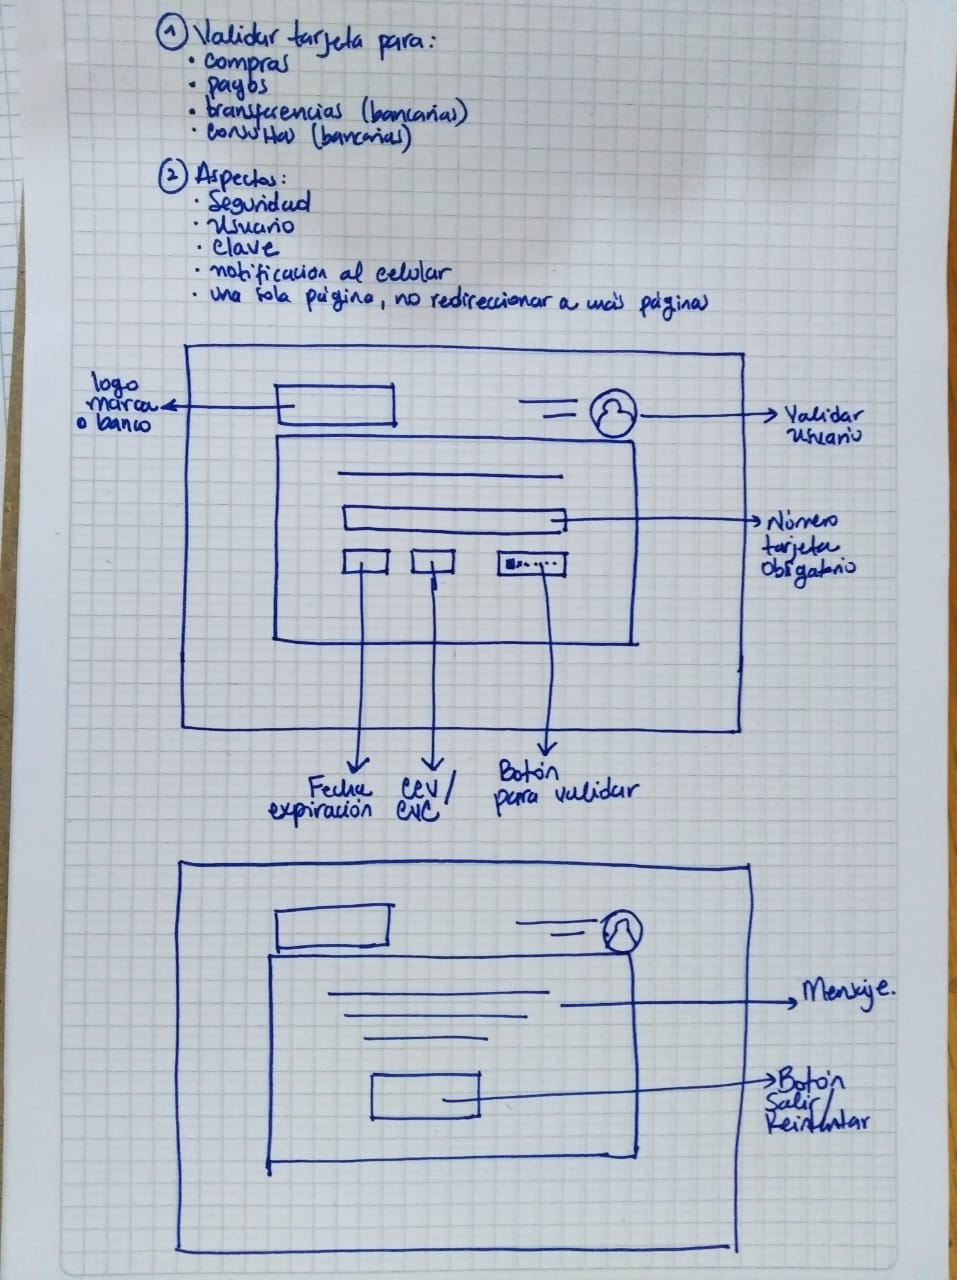 ① Validar tarjeta para:
• compras
• pagos
• transferencias (bancarias)
• consultas (bancarias)
② Aspectos:
• Seguridad
• Usuario
• clave
• notificación al celular
• una sola página, no redireccionar a más páginas
logo
marca
o banco
Validar
usuario
Número
tarjeta
obligatorio
Fecha
expiración
CCV/
CVC
Botón
para validar
Mensaje.
Botón
Salir/
Reintentar